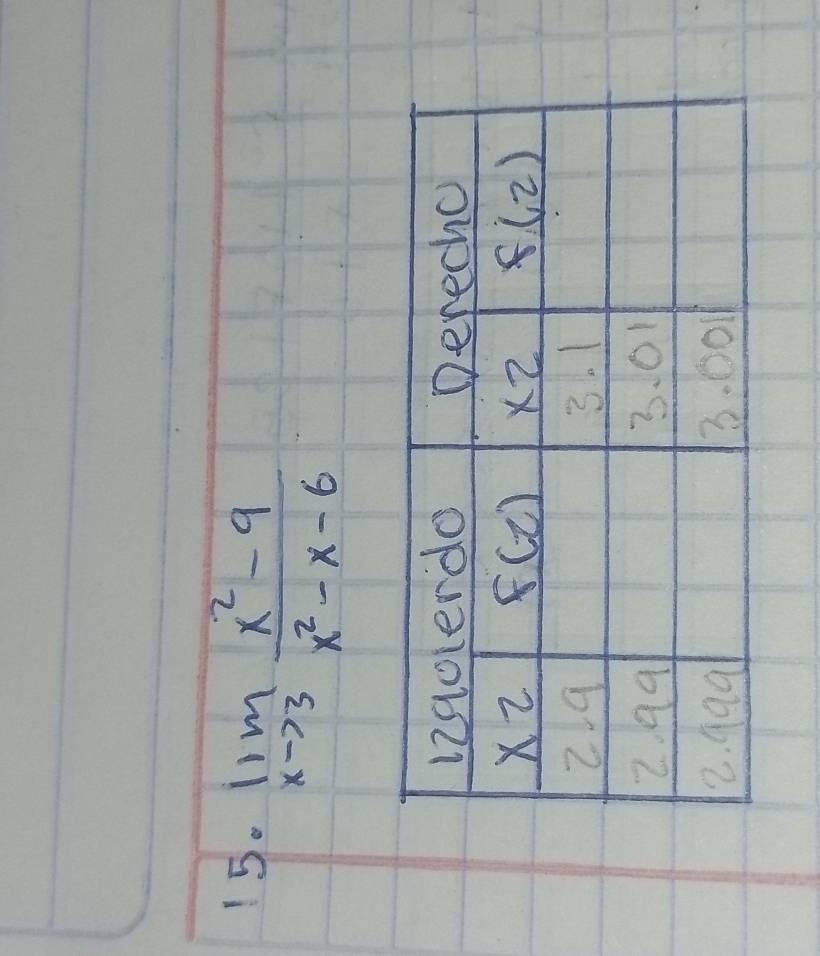 15. lim x² - 9
x→3 x² - x - 6
Izquierdo Derecho
x2 f(2) x2 f(2)
2.9 3.1
2.99 3.01
2.999 3.001